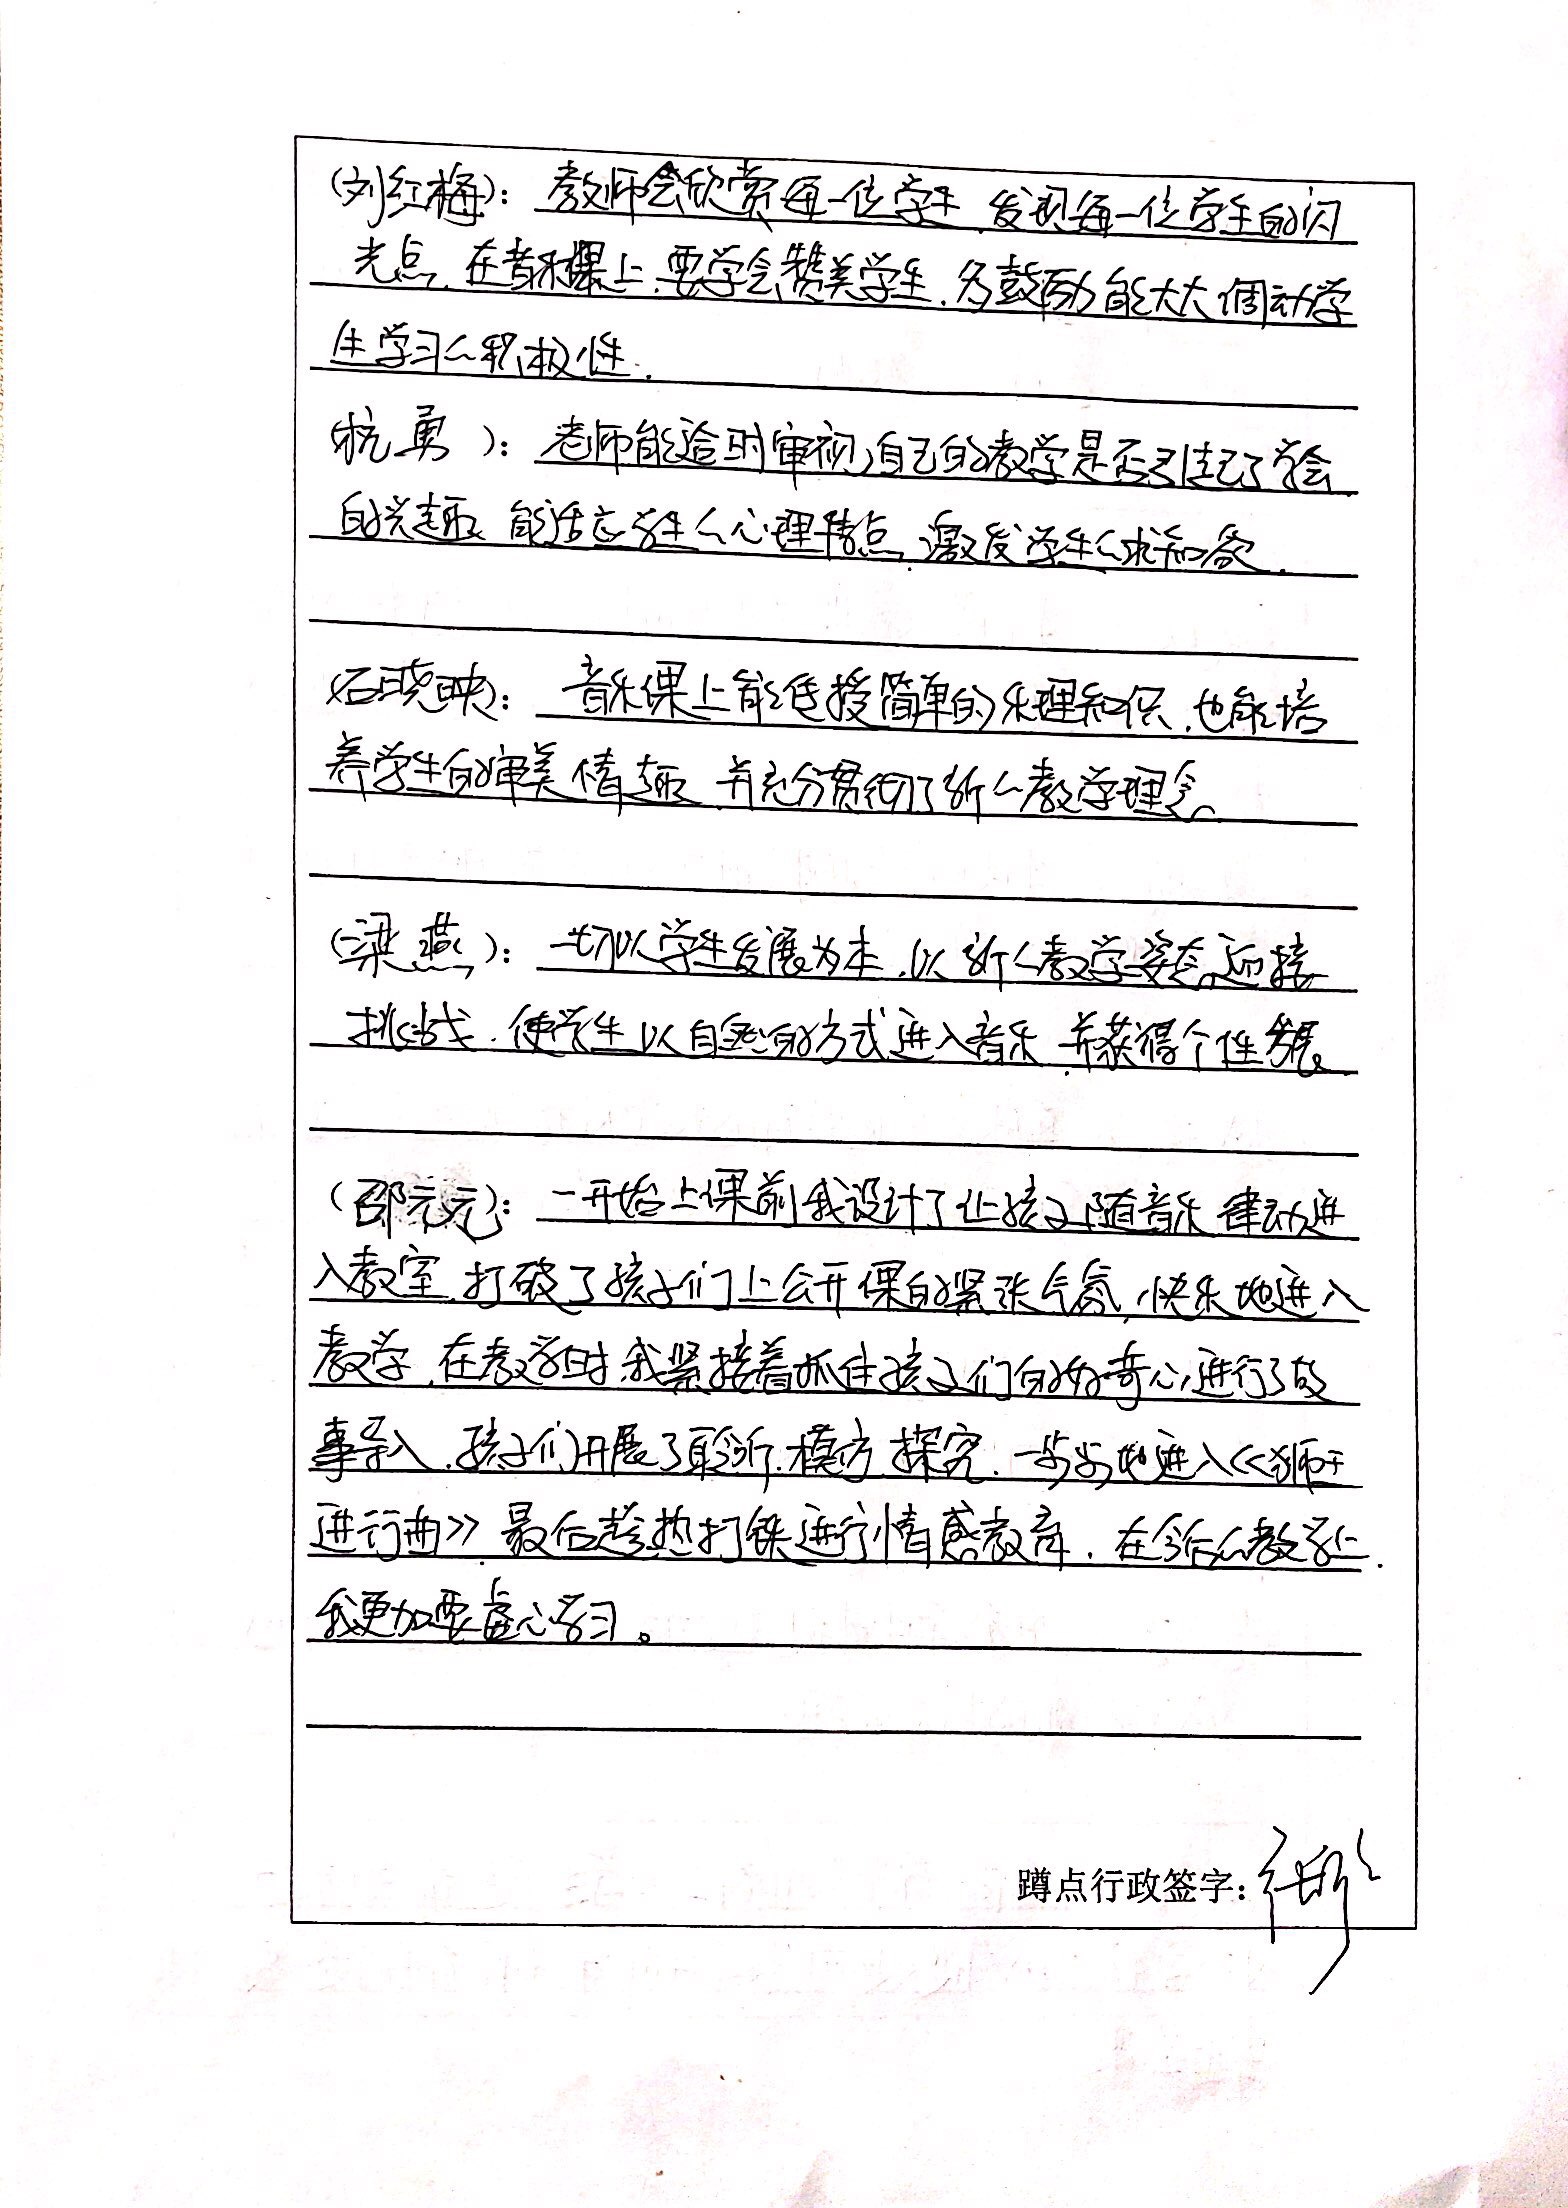 (刘红梅)：教师会欣赏每一位学生，发现每一位学生的闪
光点，在音乐课上，要学会赞美学生，多鼓励能大大调动学
生学习的积极性．
(杭勇 )：老师能适时审视自己的教学是否引起了学会
的兴趣，能适应学生的心理特点，激发学生的求知欲．
(石晓映)：音乐课上能传授简单的乐理知识，也能培
养学生的审美情趣，并充分贯彻了新的教学理念。
(梁燕)：一切以学生发展为本，以新的教学姿态迎接
挑战，使学生以自然的方式进入音乐，并获得个性发展．
(邵元元)：一开始上课前我设计了让孩子随音乐律动进
入教室，打破了孩子们上公开课的紧张气氛，快乐地进入
教学，在教学时我紧接着抓住孩子们的好奇心，进行了故
事导入，孩子们开展了聆听，模仿，探究，一步步地进入《狮王
进行曲》最后趁热打铁进行情感教育．在今后的教学上，
我更加要虚心学习。
蹲点行政签字：